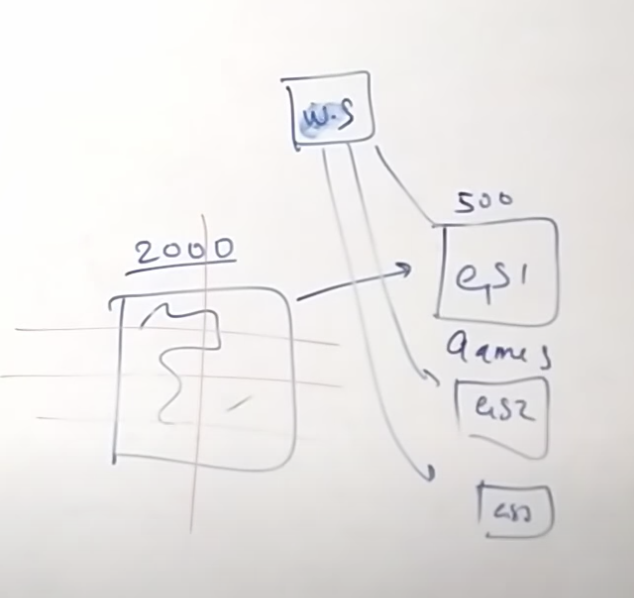 W.S
500
2000
GS1
Games
GS2